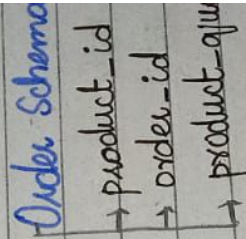 Order Schema
→ product_id
→ order_id
→ product_qu